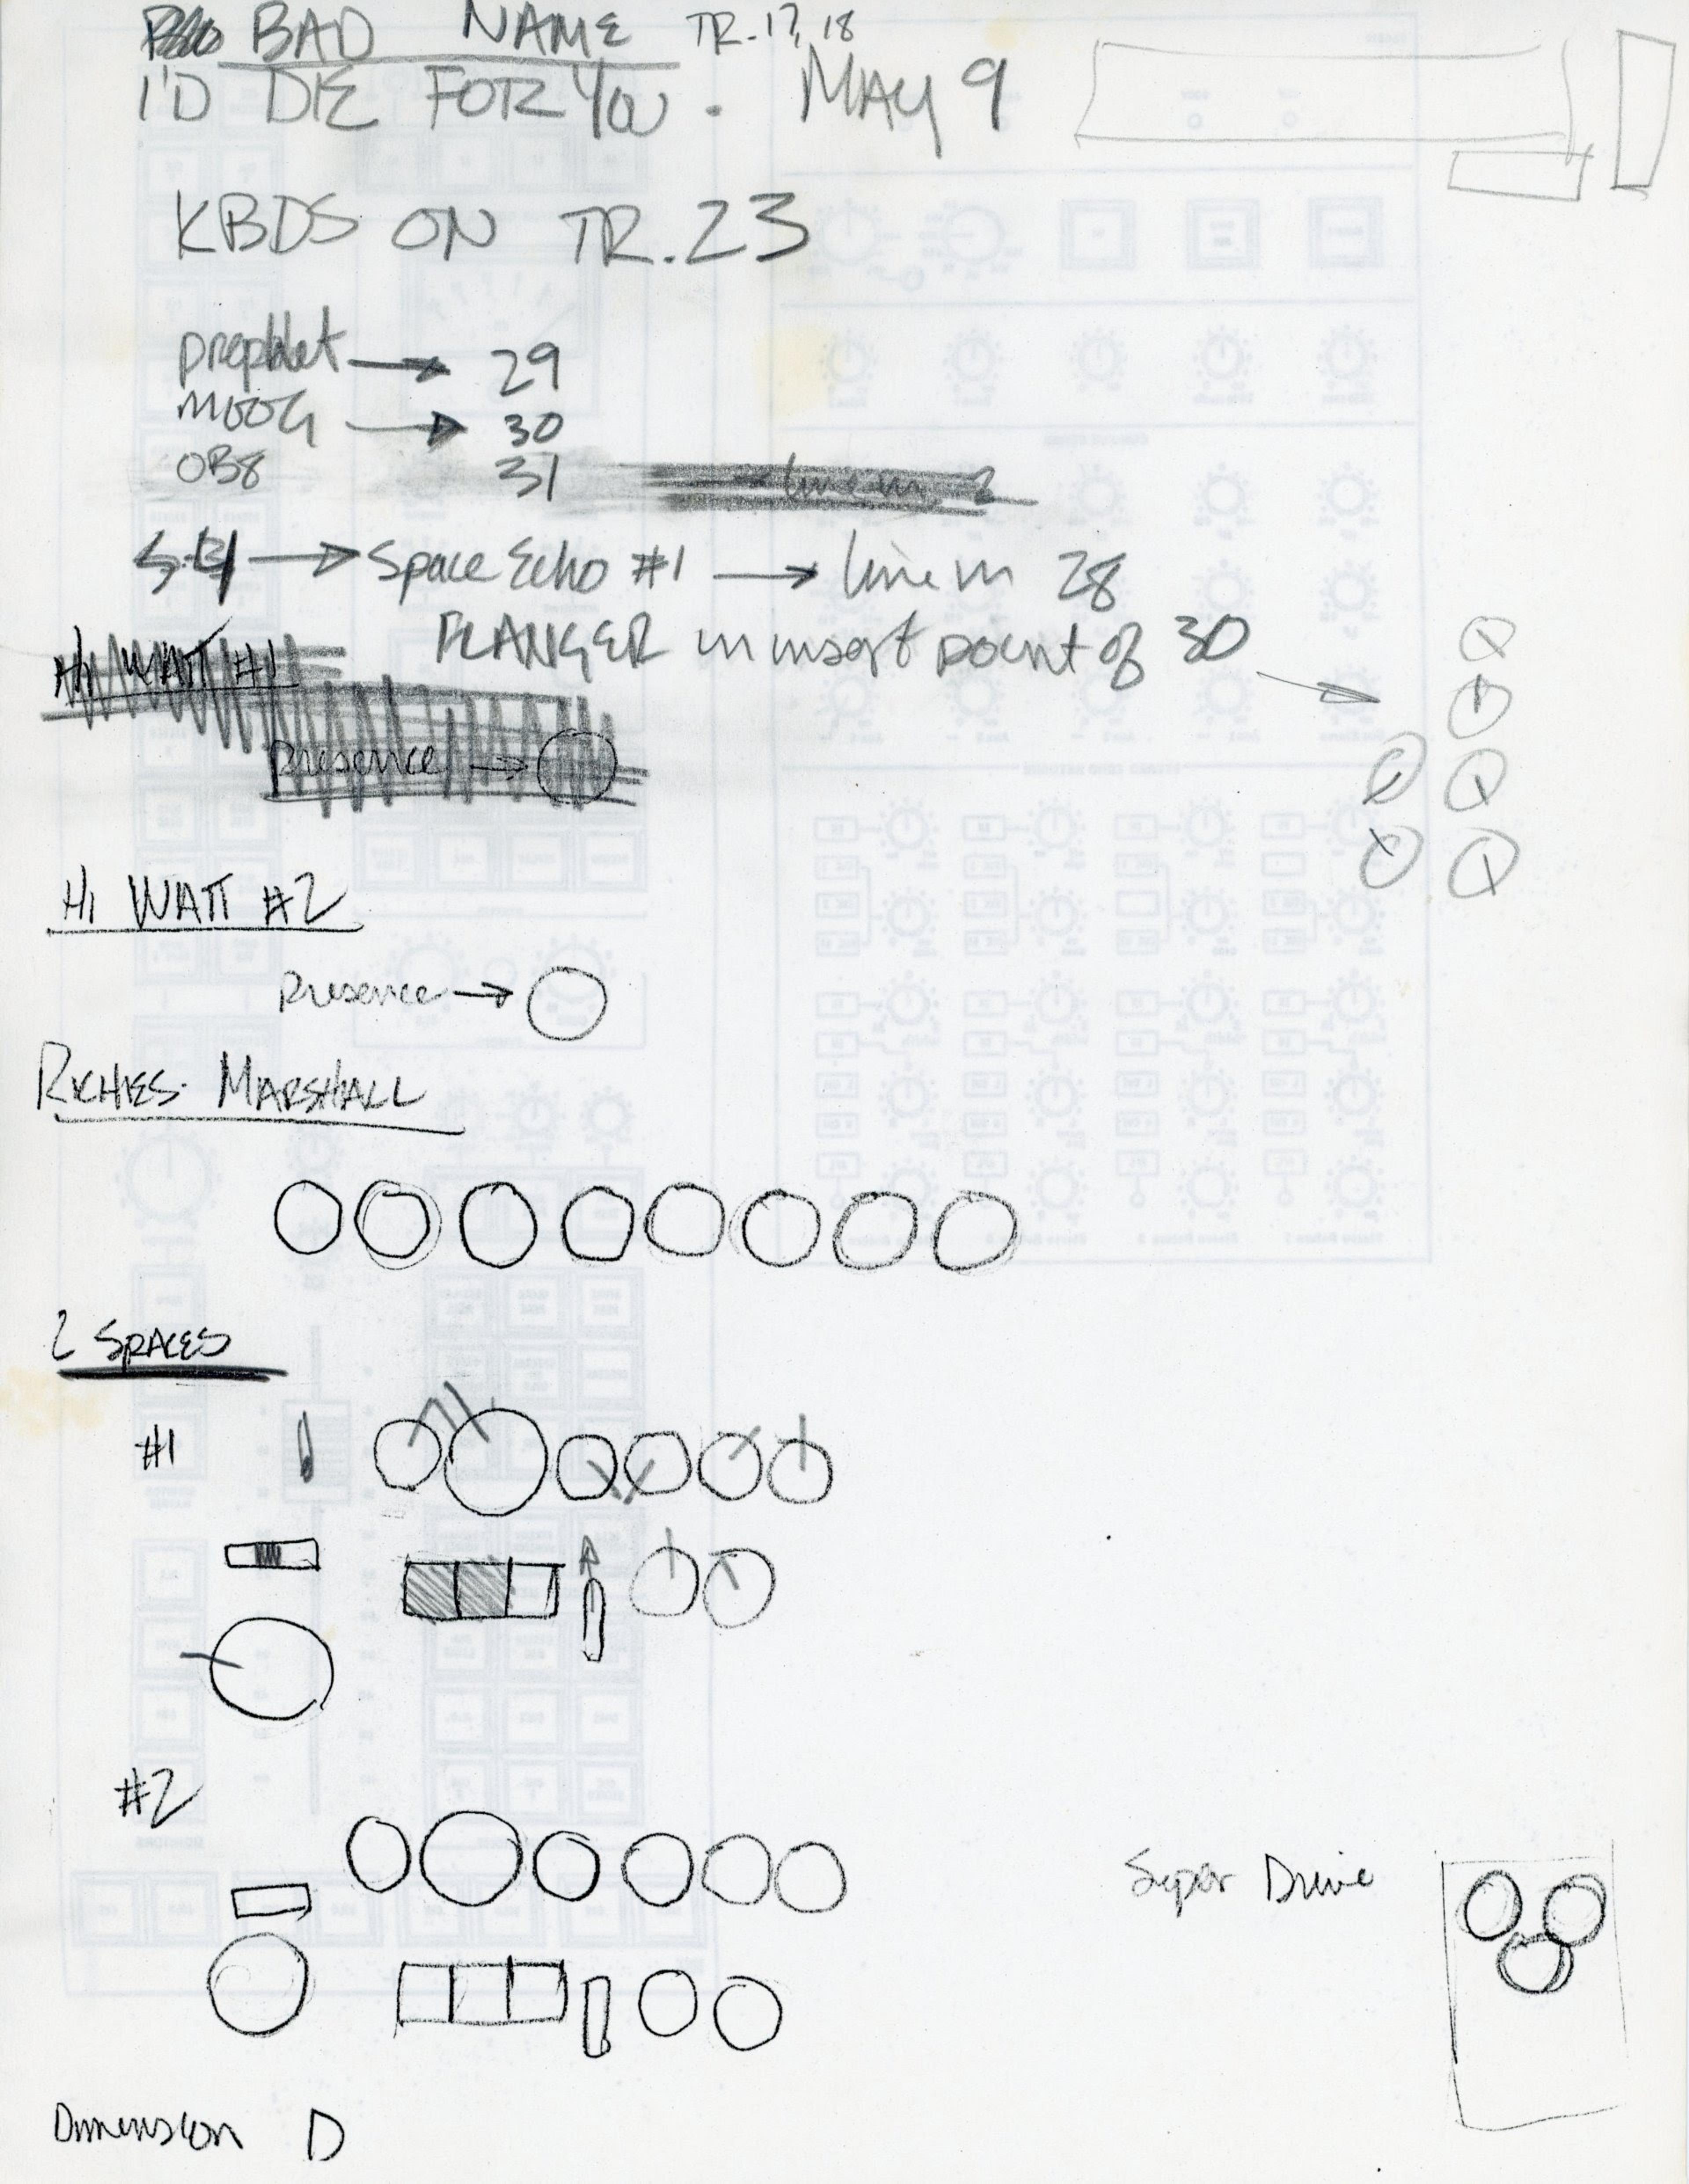 BAD NAME TR. 17, 18
I'D DIE FOR YOU. MAY 9
KBDS ON TR. 23
prophet → 29
MOOG → 30
OB8 31
line in 2
→ Space Echo #1 → line in 28
FLANGER in insert point of 30
Hi WATT #1
Presence →
Hi WATT #2
Presence →
RICHIES MARSHALL
2 SPACES
#1
#2
Super Drive
Dimension D